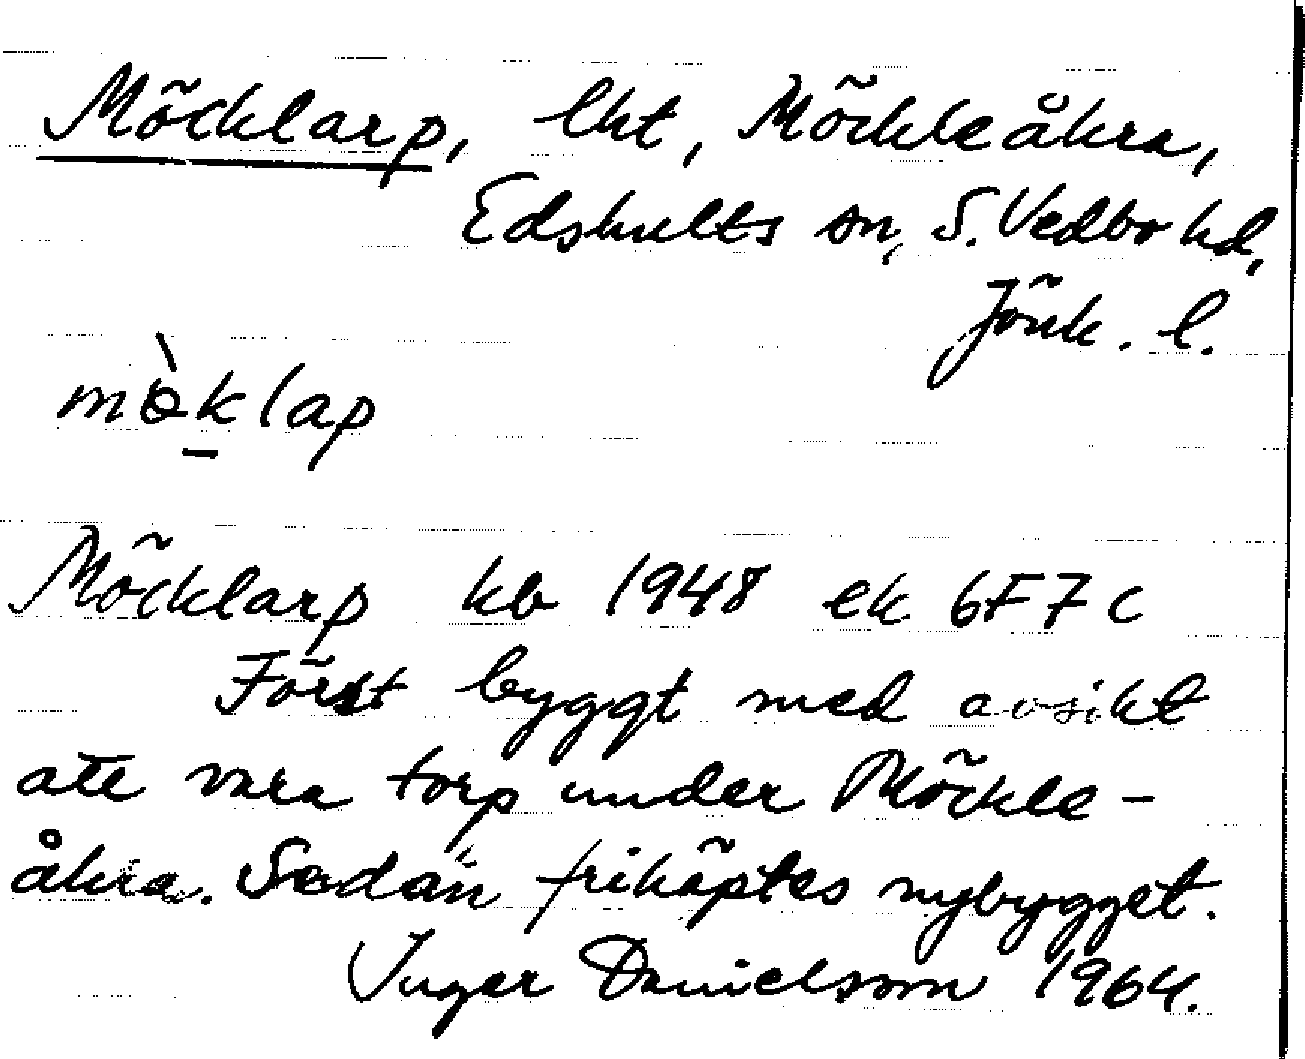 Möcklarp, lht, Möckleåkra,
Edshults sn, S. Vedbo hd,
Jönk. l.
mò̀k̠lap
Möcklarp kb 1948 ek 6F7c
Först byggt med avsikt
att vara torp under Möckle-
åkra. Sedan friköptes nybygget.
Inger Danielsson 1964.